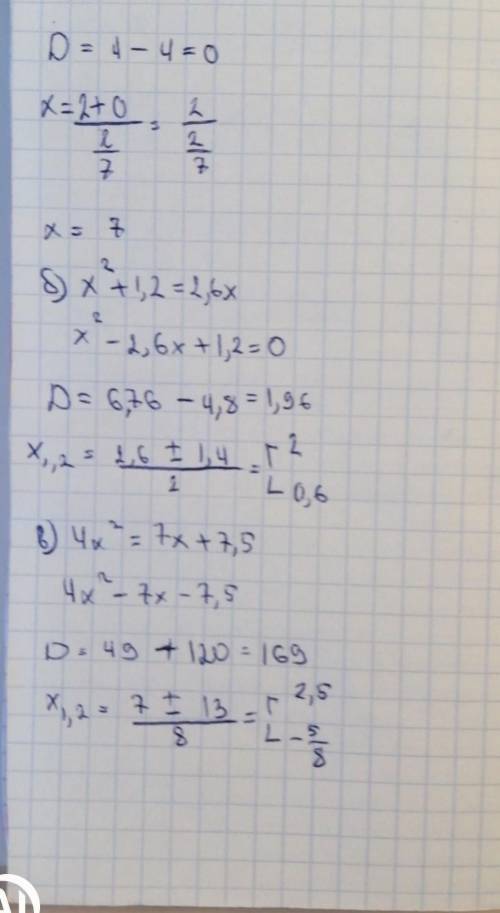 D = 4 - 4 = 0
x = (2+0)/(2/7) = 2/(2/7)
x = 7
б) x² + 1,2 = 2,6x
x² - 2,6x + 1,2 = 0
D = 6,76 - 4,8 = 1,96
x₁,₂ = (2,6 ± 1,4)/2 = [ 2
0,6
в) 4x² = 7x + 7,5
4x² - 7x - 7,5
D = 49 + 120 = 169
x₁,₂ = (7 ± 13)/8 = [ 2,5
-5/8